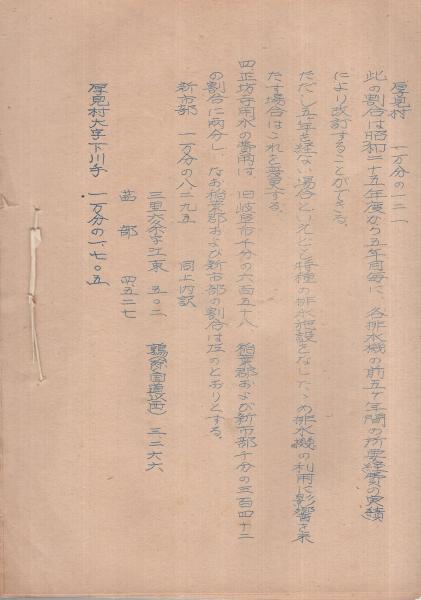 厚見村 一万分の一二一
此の割合は昭和二十五年度から五年目毎に 各排水機の前五ケ年間の所要経費の実績
により改訂することができる。
ただし五年を経ない場合といえども特種の排水施設をなしたゝめ排水機の利用に影響を来
たす場合はこれを変更する。
四、正坊寺用水の費用は、旧岐阜市千分の六百五十八 稲葉郡および新市部千分の三百四十二
の割合に両分し なお稲葉郡および新市部の割合は左のとおりとする。
新市部 一万分の八二九五 同上内訳
三里六条字江東 五〇二 鶉(国道以西) 三二六六
茜部 四五二七
厚見村大字下川手 一万分の一、七〇五